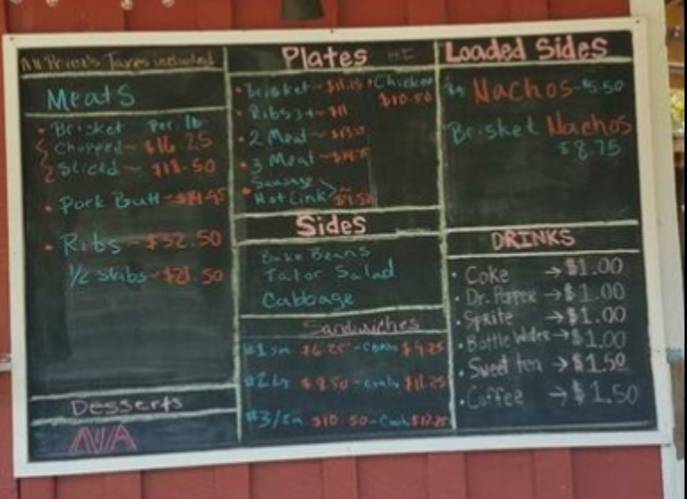 All Prices Taxes included
Meats
• Brisket Per lb.
Chopped ~ $16.25
Sliced ~ $18.50
• Pork Butt ~ $14.95
• Ribs ~ $32.50
1/2 slabs ~ $21.50
Desserts
N/A
Plates
• Brisket ~ $11.15 • Chicken
$10.50
• Ribs 3 ~ $11
• 2 Meat ~
• 3 Meat ~
• Sausage
Hot Link
Sides
Bake Beans
Tator Salad
Cabbage
Sandwiches
#1 sm $6.25 - Combo $9.25
#2 Lg $8.50 - Combo $11.25
#3 $10.50 -
Loaded Sides
Nachos - $5.50
Brisket Nachos
$8.75
DRINKS
• Coke → $1.00
• Dr. Pepper → $1.00
• Sprite → $1.00
• Bottle Water → $1.00
• Sweet tea → $1.50
• Coffee → $1.50